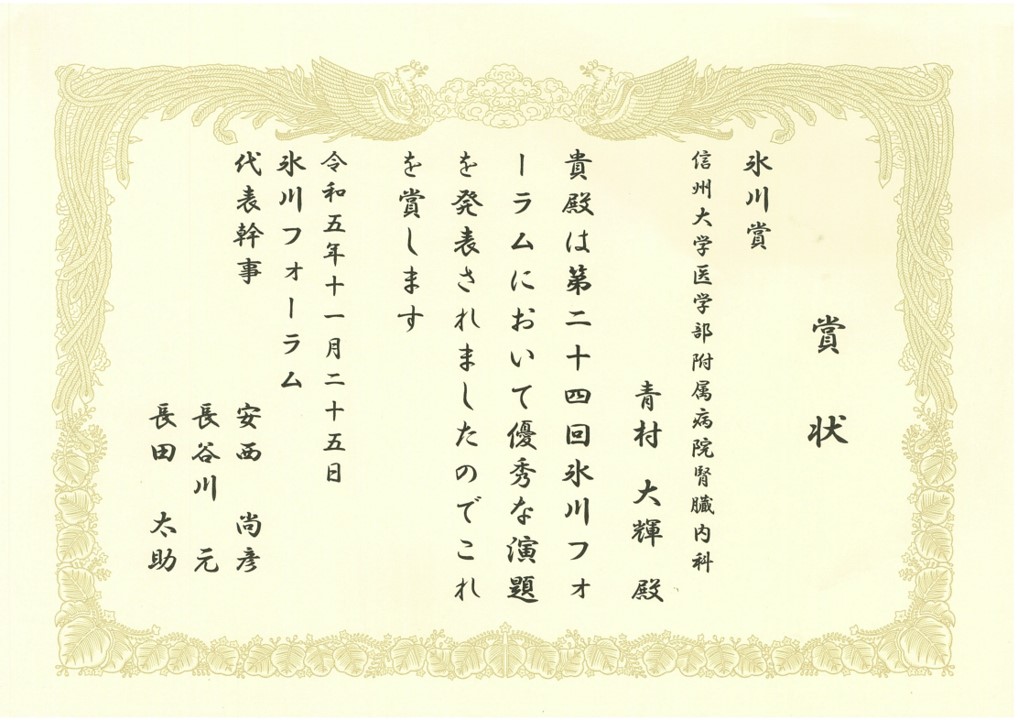 賞状
氷川賞
信州大学医学部附属病院腎臓内科
青村 大輝 殿
貴殿は第二十四回氷川フォ
ーラムにおいて優秀な演題
を発表されましたのでこれ
を賞します
令和五年十一月二十五日
氷川フォーラム
代表幹事 安西 尚彦
長谷川 元
長田 太助